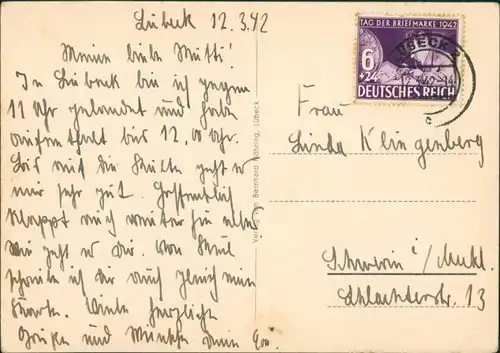 Lübeck 12.3.42
Meine liebe Mutti!
In Lübeck bin ich gegen
11 Uhr gelandet und habe
Aufenthalt bis 12. Uhr.
Bis auf die Kälte geht es
mir sehr gut. Hoffentlich
klappt auch weiter
wie geht es Dir. Von
schreibe ich Dir auch gleich eine
Karte. Viele herzliche
Grüße und Wünsche Deine
Verlag von Bernhard Nöhring, Lübeck
TAG DER BRIEFMARKE 1942
6
+24
DEUTSCHES REICH
LÜBECK
Frau
Linda Klingenberg
Schwerin i/Meckl.
Schlachterstr. 13